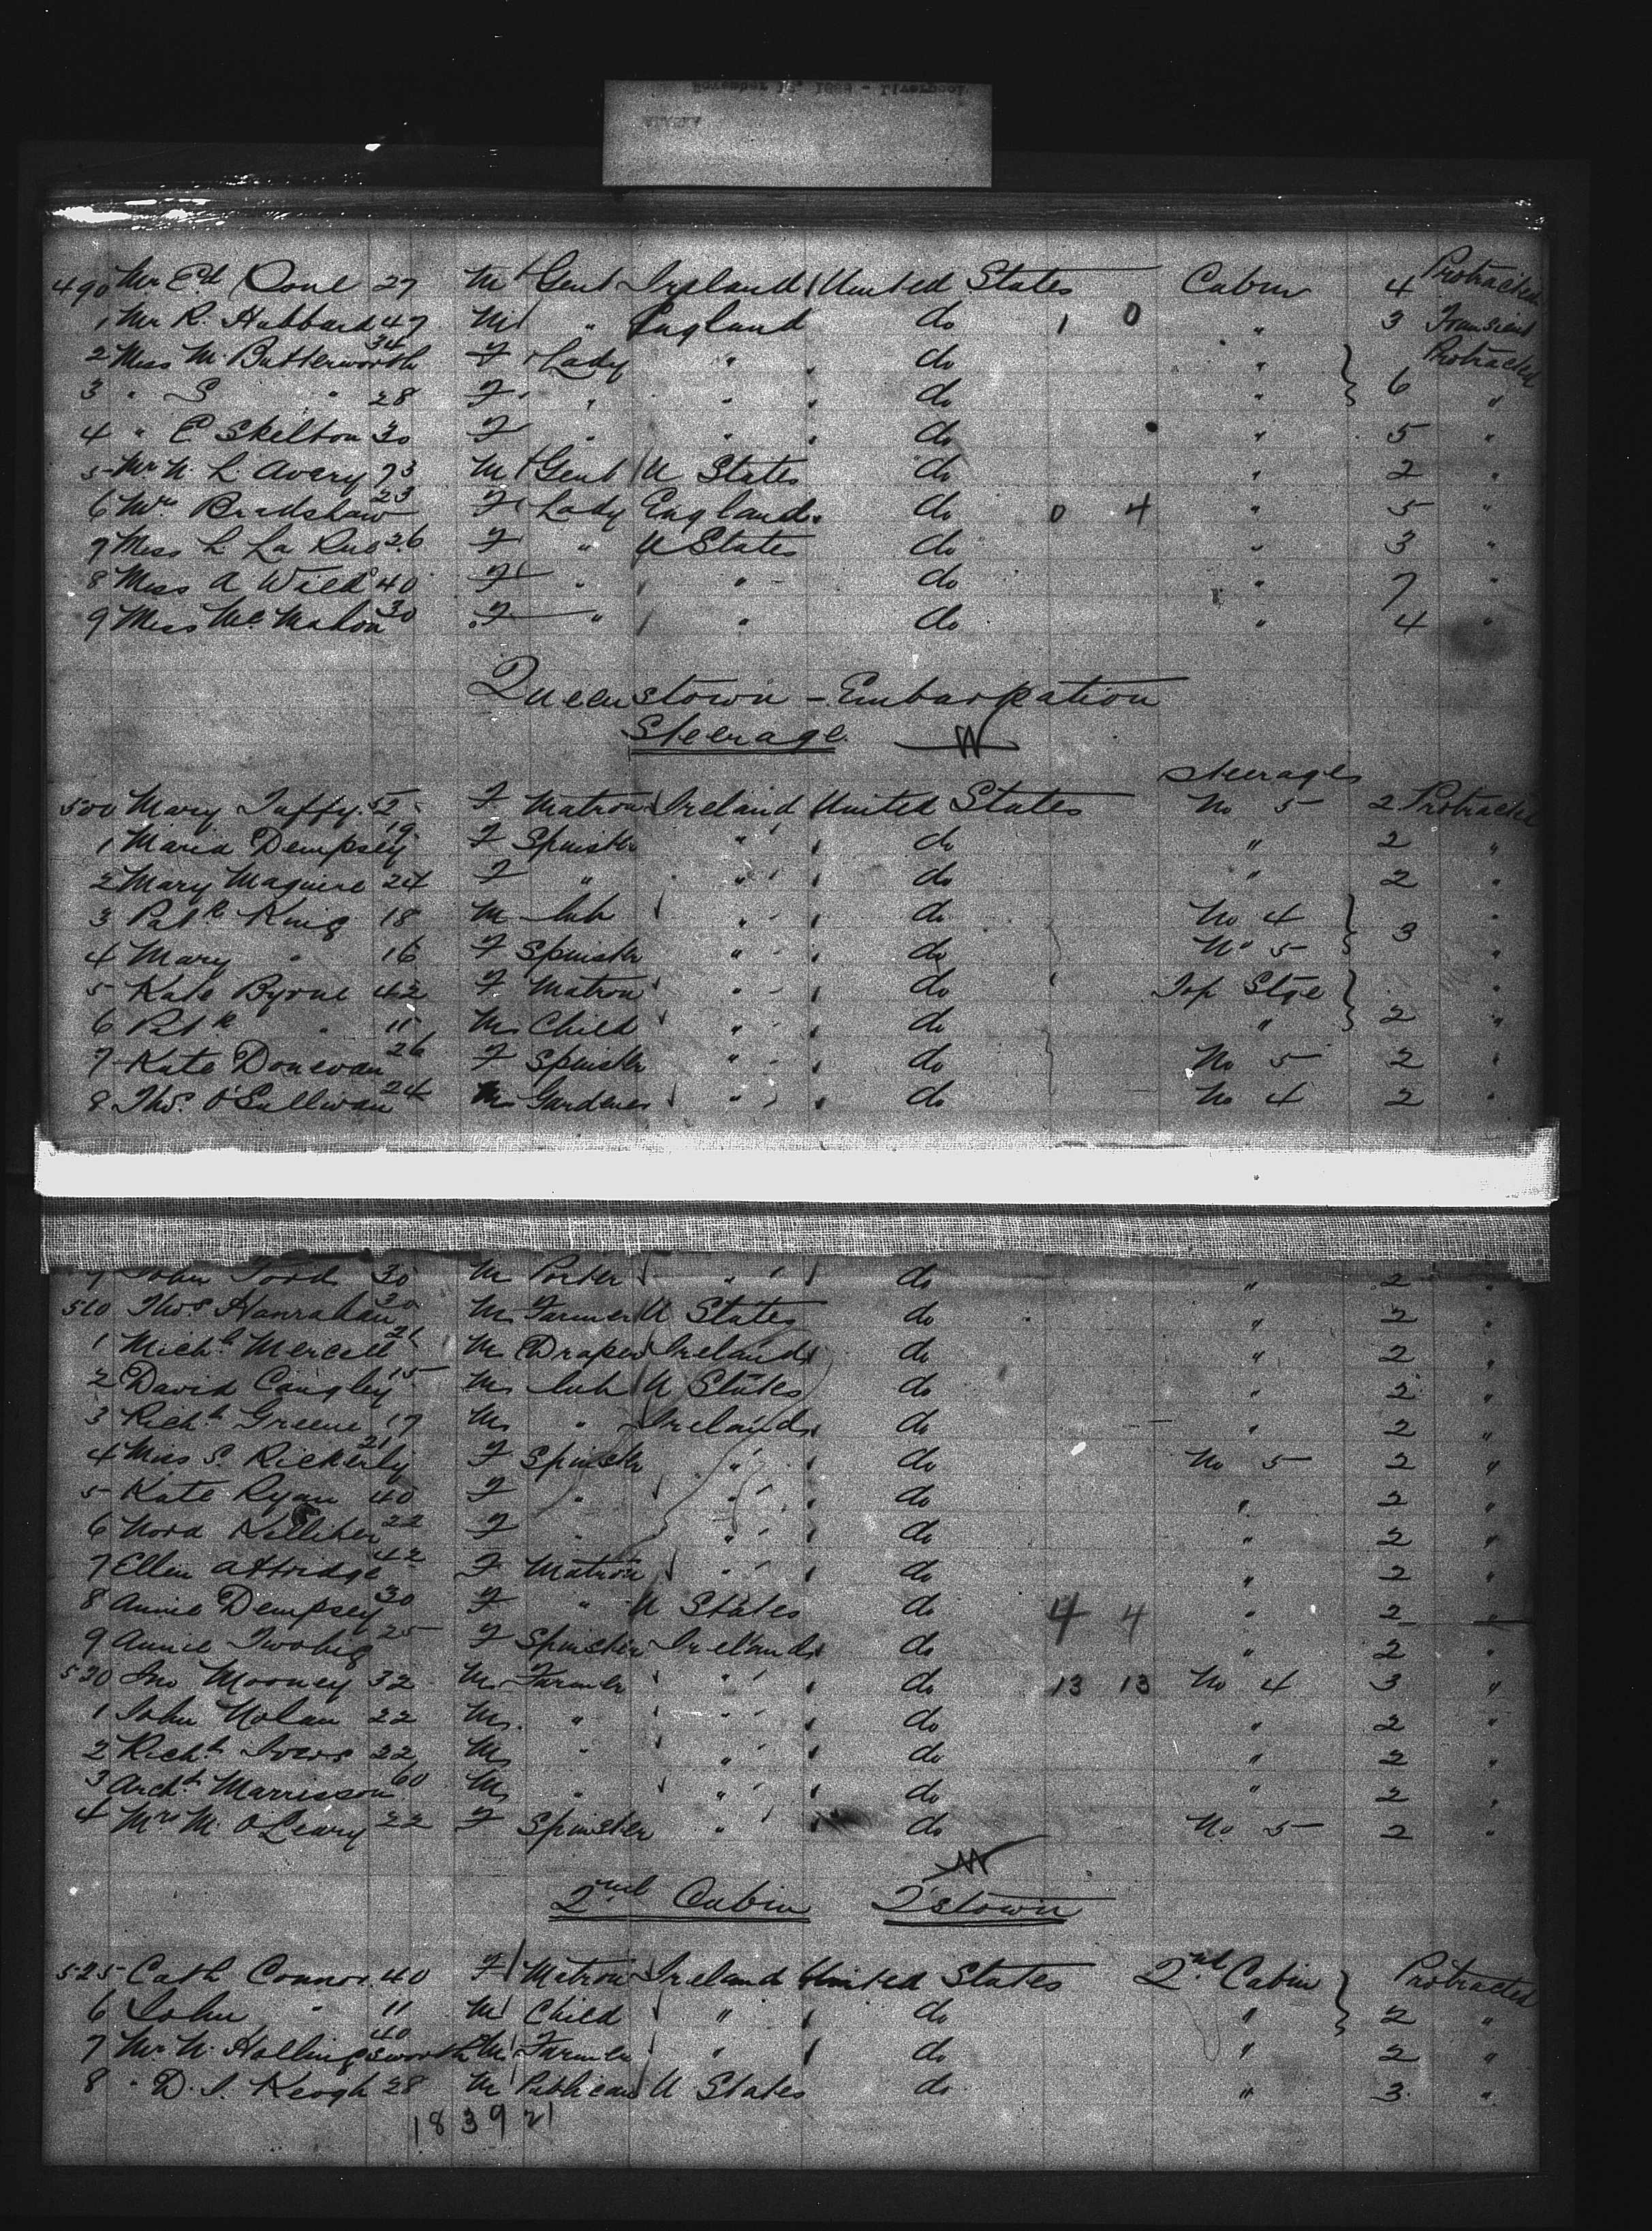 November 1889 - Liverpool
ALASKA
490 Mr Ed 27 M Gent Ireland United States Cabin 4 Protracted
1 Mr R. Hubbard 47 M " England do 1 0 " 3 Transient
2 Miss M. Butterworth 34 F Lady " do " Protracted
3 " S " 28 F " " do " 6 "
4 " E Skelton 30 F " " do " 5 "
5 Mr N L Avery 73 M Gent U States do " 2 "
6 Mrs Bradshaw 23 F Lady England do 0 4 " 5 "
7 Miss L. La Rue 26 F " U States do " 3 "
8 Miss A Wild 40 F " " do " 7 "
9 Miss McMahon 30 F " " do " 4 "
Queenstown - Embarkation
Steerage
Steerages
500 Mary Taffy 52 F Matron Ireland United States No 5 2 Protracted
1 Maria Dempsey 19 F Spinster " do " 2 "
2 Mary Maguire 24 F " " do " 2 "
3 Patk King 18 M Lab " do No 4 3 "
4 Mary " 16 F Spinster " do No 5 "
5 Kate Byrne 42 F Matron " do Isp Stge "
6 Patk " 11 M Child " do " 2 "
7 Kate Donevan 26 F Spinster " do No 5 2 "
8 Thos. O'Sullivan 24 M Gardener " do No 4 2 "
9 John Ford 30 M Porter " do " 2 "
510 Thos Hanrahan 30 M Farmer U States do " 2 "
1 Michl Mercell 21 M Draper Ireland do " 2 "
2 David Cangley 15 M Lab U States do " 2 "
3 Richd Greene 17 M " Ireland do " 2 "
4 Miss S. Rickerly 21 F Spinster " do No 5 2 "
5 Kate Ryan 40 F " " do " 2 "
6 Nora Kelliher 22 F " " do " 2 "
7 Ellen Attridge 42 F Matron " do " 2 "
8 Annie Dempsey 30 F " U States do 4 4 " 2 "
9 Annie Twohig 25 F Spinster Ireland do " 2 "
520 Jno Mooney 32 M Farmer " do 13 13 No 4 3 "
1 John Nolan 22 M " " do " 2 "
2 Richd 22 M " " do " 2 "
3 Archd Marrisson 60 M " " do " 2 "
4 Mrs M. O'Leary 22 F Spinster " do No 5 2 "
2nd Cabin Q'stown
525 Cath Connor 40 F Matron Ireland United States 2nd Cabin Protracted
6 John " 11 M Child " do " 2 "
7 Mr N. Hollingsworth 40 M Farmer " do " 2 "
8 " D. J. Keogh 28 M Publican U States do " 3 "
183921